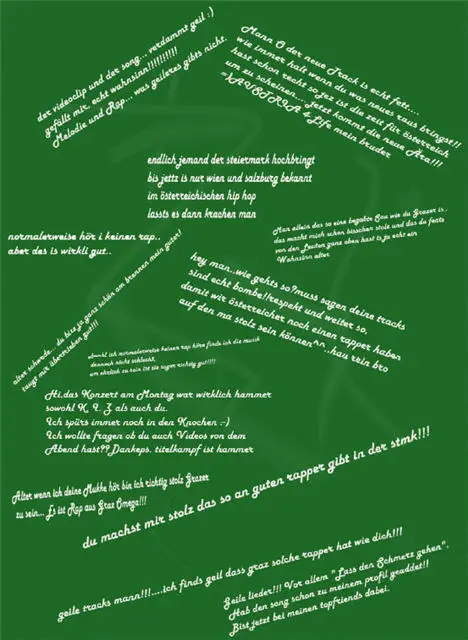 der videoclip und der song... verdammt geil :)
gefällt mir, echt wahnsinn!!!!!!!!!!
Melodie und Rap... was geileres gibts nicht.
Mann O der neue Track is echt fett....
wie immer halt wenn du was neues raus bringst!!
hast schon recht so jez ist die zeit für österreich
um zu scheinen... Jetzt kommt die neue Ära!!!
=)AUSTRIA 4 Life mein bruder
endlich jemand der steiermark hochbringt
bis jettz is nur wien und salzburg bekannt
im österreichischen hip hop
lassts es dann krachen man
normalerweise hör i keinen rap..
aber des is wirkli gut..
Man allein das so eine begabte Sau wie du Grazer is..
das macht mich schon bisschen stolz und das du feats
von den Leuten ganz oben hast is ja echt ein
Wahnsinn alter
hey man..wie gehts so?muss sagen deine tracks
sind echt bombe!!respekt und weiter so,
damit wir österreicher noch einen rapper haben
auf den ma stolz sein können^^..hau rein bro
alter schwede... du bist ja ganz schön am brennen mein guter!
taugt mir übertrieben gut!!!
obwohl ich normalerweise keinen rap höre finde ich die musik
dennoch nicht schlecht,
um ehrlich zu sein ist sie sogar richtig gut!!!!
Hi,das Konzert am Montag war wirklich hammer
sowohl K. I. Z als auch du.
Ich spürs immer noch in den Knochen :-)
Ich wollte fragen ob du auch Videos von dem
Abend hast?? Dankeps. titelkampf ist hammer
Alter wenn ich deine Mukke hör bin ich richtig stolz Grazer
zu sein... Es ist Rap aus Graz Omega!!!
du machst mir stolz das so an guten rapper gibt in der stmk!!!
geile tracks mann!!!....ich finds geil dass graz solche rapper hat wie dich!!!
Geile lieder!!! Vor allem "Lass den Schmerz gehen".
Hab den song schon zu meinem profil geaddet!!
Bist jetzt bei meinen topfriends dabei.